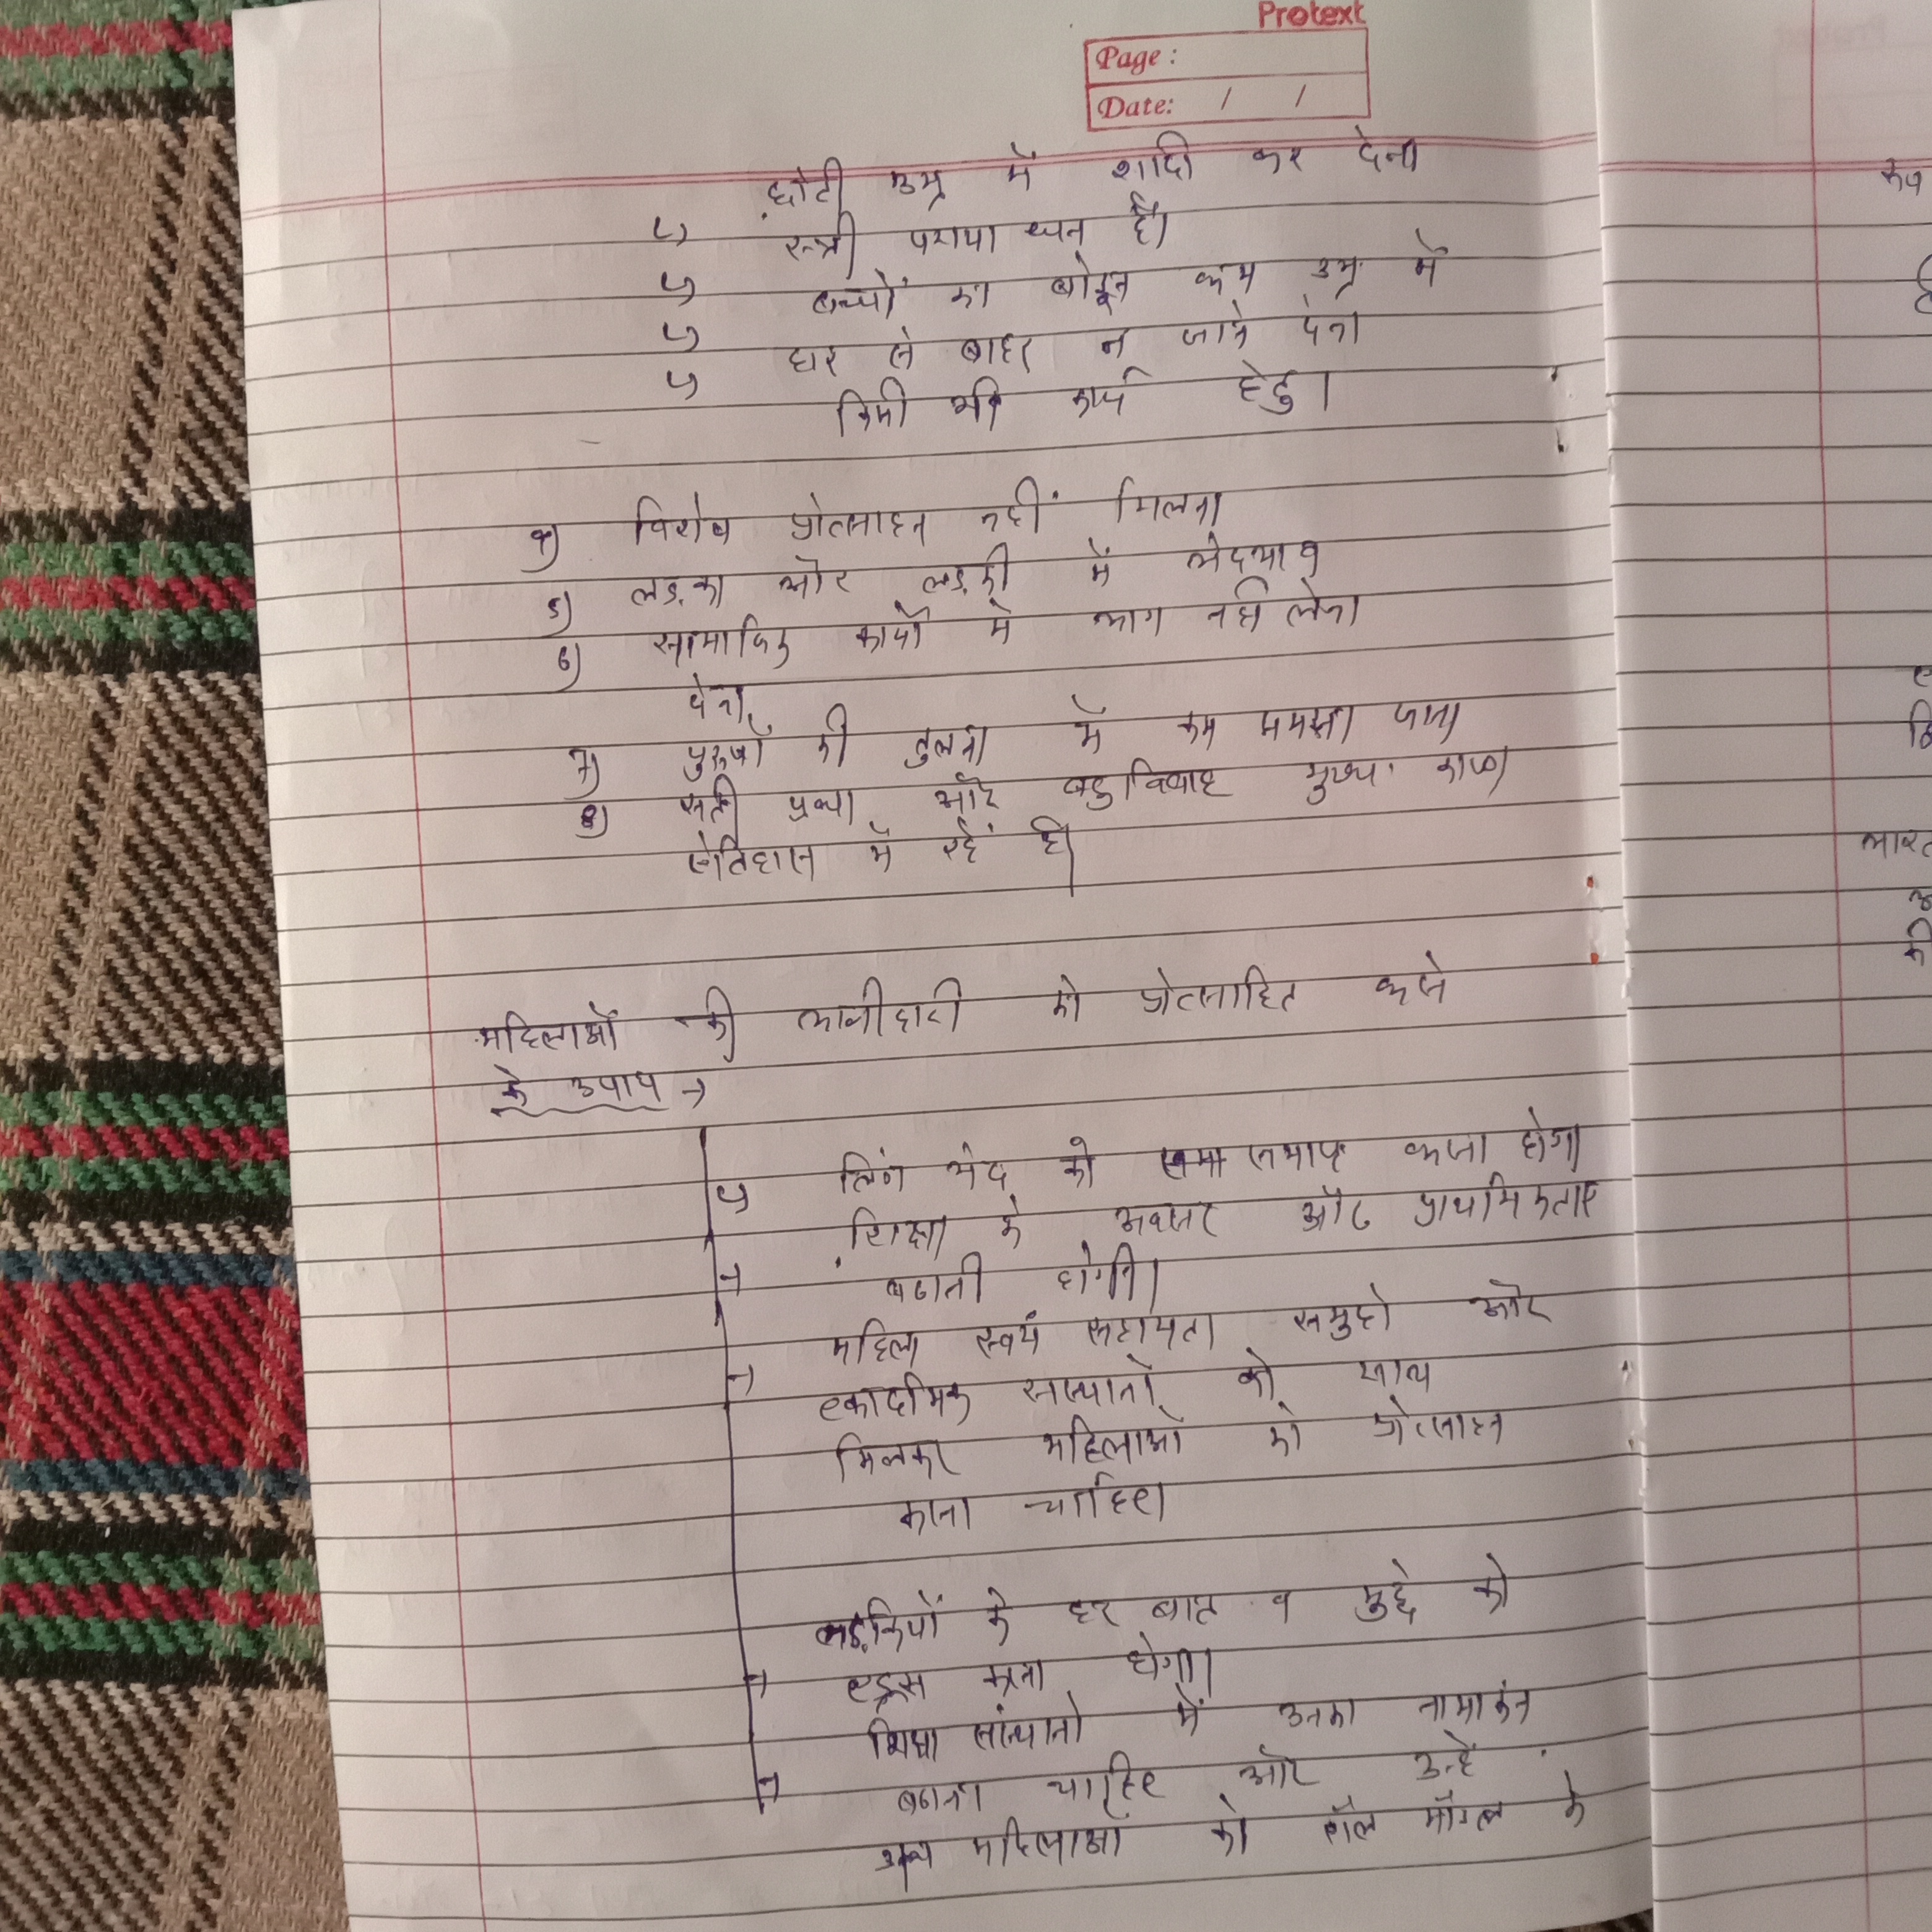 Protext
Page :
Date: / /
छोटी उम्र में शादी कर देना
स्त्री पराया धन है।
बच्चों का बोझ कम उम्र में
घर से बाहर न जाने देना
किसी भी कार्य हेतु।
4) विशेष प्रोत्साहन नहीं मिलना
5) लड़का और लड़की में भेदभाव
6) सामाजिक कार्यों में भाग नही लेना
देना,
7) पुरुषों की तुलना में कम समझा जाना
8) सती प्रथा और बहुविवाह मुख्य कारण
ऐतिहास में रहें है।
महिलाओं की भागीदारी को प्रोत्साहित करने
के उपाय →
लिंग भेद को समा समाप्त करना होगा
शिक्षा के अवसर और प्राथमिकताए
बढानी होगी।
महिला स्वयं सहायता समुहो और
एकादमिक संस्थानों को साथ
मिलकर महिलाओं को प्रोत्साहन
करना चाहिए।
लड़कियों के हर बात व मुद्दे को
एड्रस करना होगा।
शिक्षा संस्थानो में उनका नामाकंन
बढाना चाहिए और उन्हें
अन्य महिलाओं को रोल मॉडल के
भारत
की